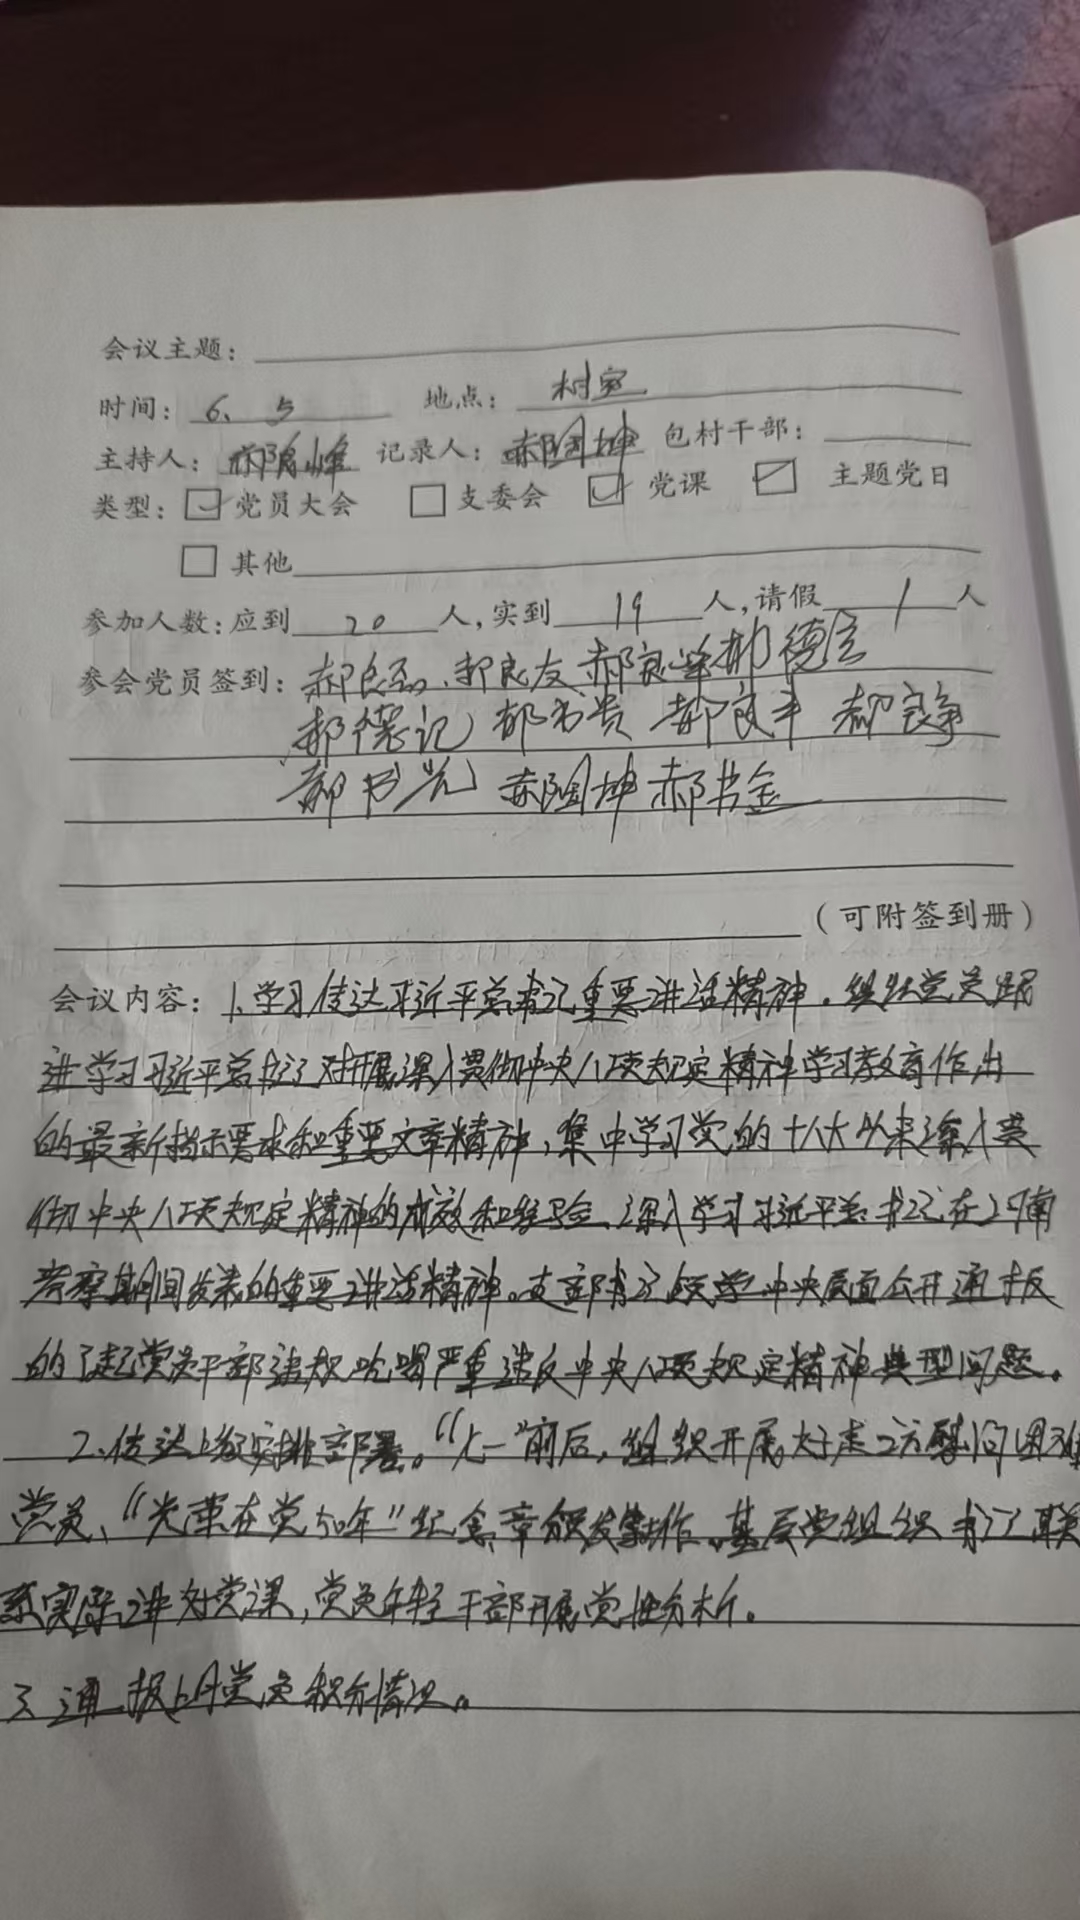 会议主题:
时间: 6、5 地点: 村室
主持人: 郝 峰 记录人: 郝国坤 包村干部:
类型: 党员大会 支委会 党课 主题党日
其他
参加人数:应到 20 人,实到 19 人,请假 1 人
参会党员签到: 郝良 、郝良友 郝良 郝德
郝德记 郝书贵 郝良丰 郝良争
郝书光 郝国坤 郝书金
(可附签到册)
会议内容: 1.学习传达习近平总书记重要讲话精神。组织党员跟
进学习习近平总书记对开展深入贯彻中央八项规定精神学习教育作出
的最新指示要求和重要文章精神,集中学习党的十八大以来深入贯
彻中央八项规定精神的成效和经验、深入学习习近平总书记在河南
考察期间发表的重要讲话精神。支部书记领学中央层面公开通报
的 起党员干部违规吃喝严重违反中央八项规定精神典型问题。
2.传达上级安排部署。“七一”前后,组织开展大走访慰问困难
党员、“光荣在党50年”纪念章颁发等工作。基层党组织书记联
系实际讲好党课,党员年轻干部开展党性分析。
3.通报上月党员积分情况。